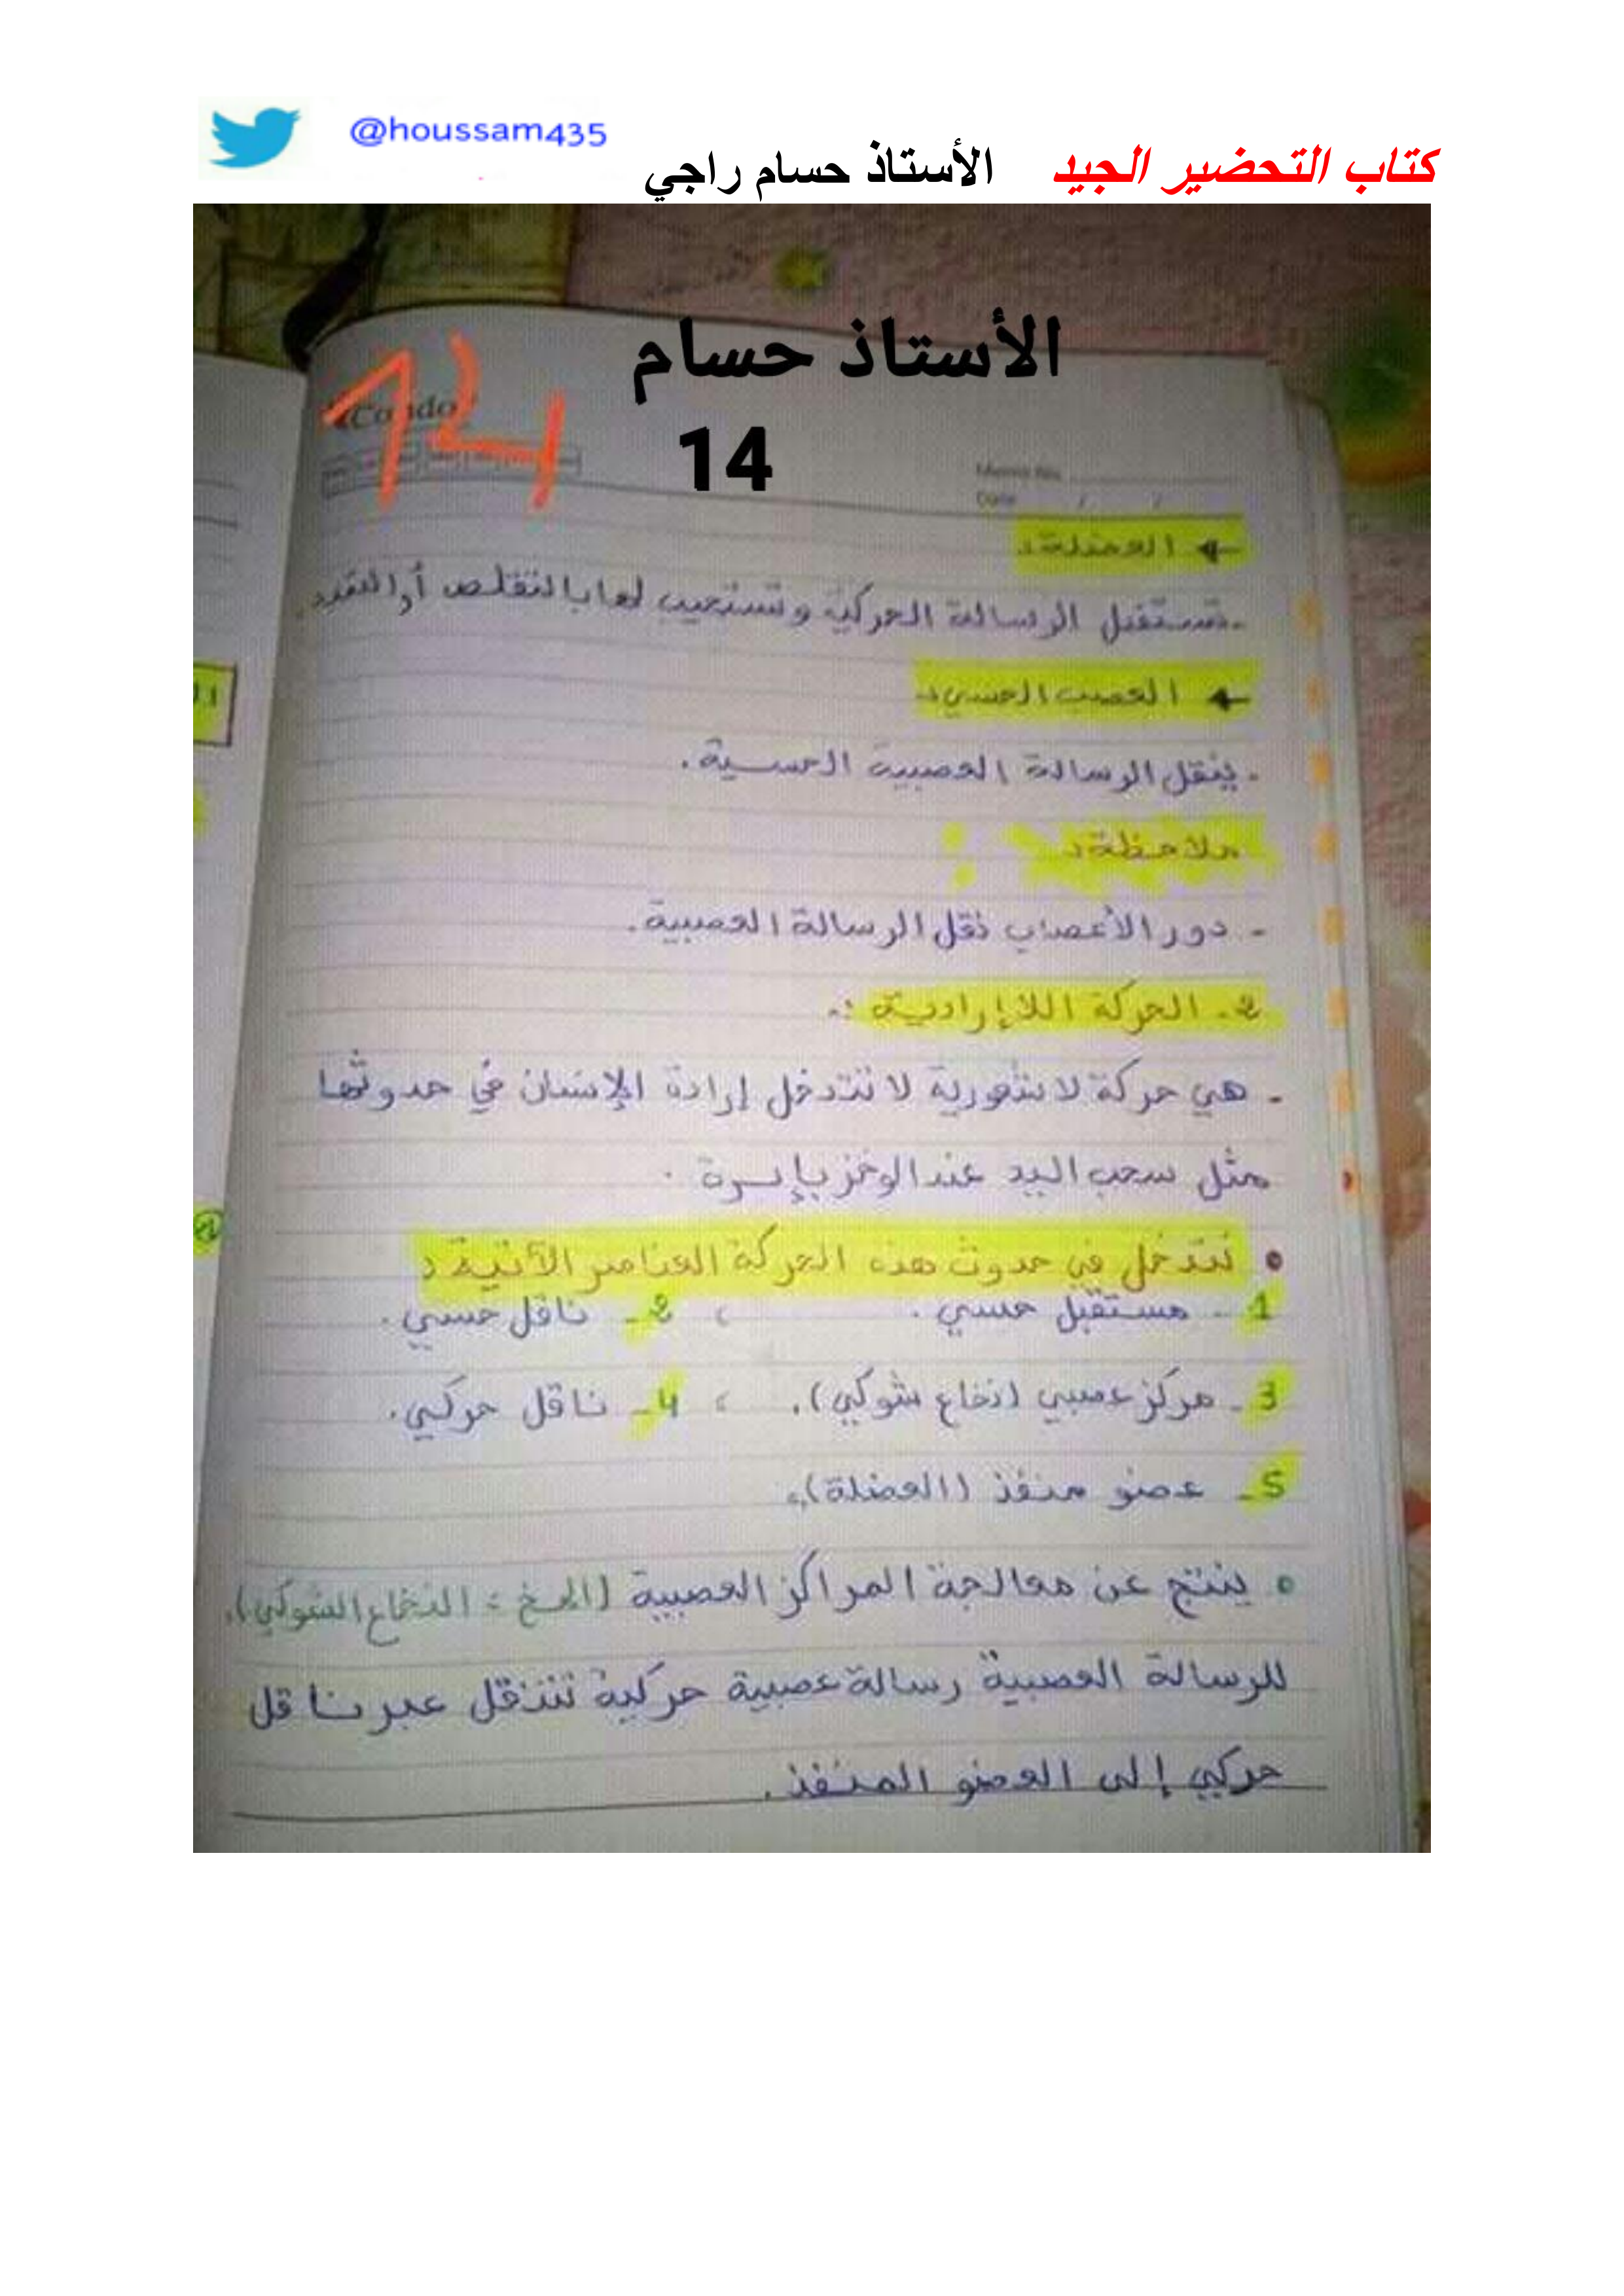 @houssam435
كتاب التحضير الجيد الأستاذ حسام راجي
الأستاذ حسام
14
14
Condo
Memo No.
Date / /
العضلة:
- تستقبل الرسالة الحركية وتستجيب لها بالتقلص أو التمدد.
العصب الحسي:
- ينقل الرسالة العصبية الحسية.
ملاحظة:
- دور الأعصاب نقل الرسالة العصبية.
2- الحركة اللاإرادية:
- هي حركة لاشعورية لا تتدخل إرادة الإنسان في حدوثها
مثل سحب اليد عند الوخز بإبرة.
• تتدخل في حدوث هذه الحركة العناصر الآتية:
1- مستقبل حسي. ، 2- ناقل حسي.
3- مركز عصبي (نخاع شوكي). ، 4- ناقل حركي.
5- عضو منفذ (العضلة).
• ينتج عن معالجة المراكز العصبية (المخ، النخاع الشوكي).
للرسالة العصبية رسالة عصبية حركية تنتقل عبر ناقل
حركي إلى العضو المنفذ.